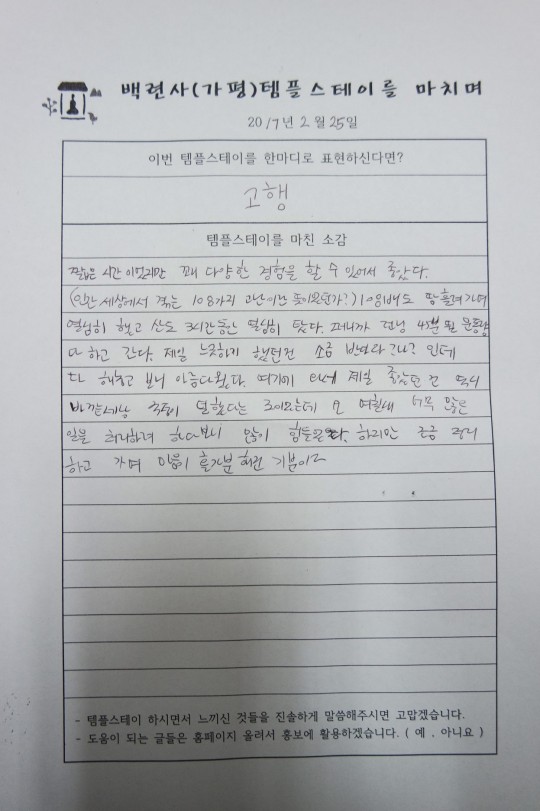 백련사(가평)템플스테이를 마치며
2017년 2월 25일
이번 템플스테이를 한마디로 표현하신다면?
고행
템플스테이를 마친 소감
짧은 시간 이었지만 꽤 다양한 경험을 할 수 있어서 좋았다.
(인간 세상에서 겪는 108가지 고난이란 뜻이었던가?) 108배도 땀 흘려가며
열심히 했고 산도 3시간동안 열심히 탔다.
다 하고 간다. 제일 했던건 소금
다 해놓고 보니 아름다웠다. 여기에 제일 좋았던 건 역시
바깥세상 너무 많은
일을 하다보니 많이 힘들었다. 하지만 조금 정리
하고 가며 마음이 홀가분 해진 기분이다
- 템플스테이 하시면서 느끼신 것들을 진솔하게 말씀해주시면 고맙겠습니다.
- 도움이 되는 글들은 홈페이지 올려서 홍보에 활용하겠습니다. ( 예 , 아니요 )